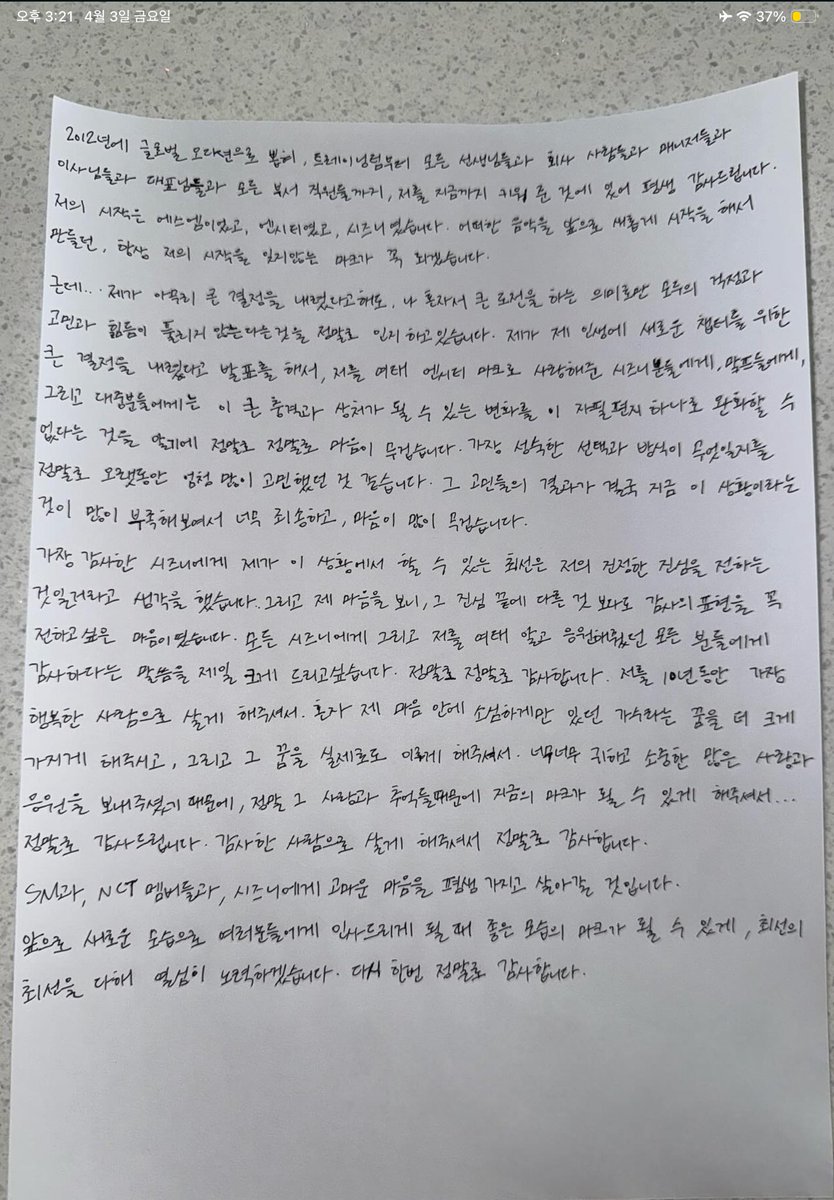 오후 3:21 4월 3일 금요일
37%
2012년에 글로벌 오디션으로 뽑혀, 트레이닝팀부터 모든 선생님들과 회사 사람들과 매니저들과
이사님들과 대표님들과 모든 부서 직원들까지, 저를 지금까지 키워 준 것에 있어 평생 감사드립니다.
저의 시작은 에스엠이었고, 엔시티였고, 시즈니였습니다. 어떠한 음악을 앞으로 새롭게 시작을 해서
만들던, 항상 저의 시작을 잊지않는 마크가 꼭 되겠습니다.
근데... 제가 아무리 큰 결정을 내렸다고해도, 나 혼자서 큰 도전을 하는 의미로만 모두의 걱정과
고민과 힘듦이 풀리지 않는다는것을 정말로 인지하고있습니다. 제가 제 인생에 새로운 챕터를 위한
큰 결정을 내렸다고 발표를 해서, 저를 여태 엔시티 마크로 사랑해준 시즈니분들에게, 맠프들에게,
그리고 대중분들에게는 이 큰 충격과 상처가 될 수 있는 변화를 이 자필편지 하나로 완화할 수
없다는 것을 알기에 정말로 정말로 마음이 무겁습니다. 가장 성숙한 선택과 방식이 무엇일지를
정말로 오랫동안 엄청 많이 고민했던 것 같습니다. 그 고민들의 결과가 결국 지금 이 상황이라는
것이 많이 부족해보여서 너무 죄송하고, 마음이 많이 무겁습니다.
가장 감사한 시즈니에게 제가 이 상황에서 할 수 있는 최선은 저의 진정한 진심을 전하는
것일거라고 생각을 했습니다. 그리고 제 마음을 보니, 그 진심 끝에 다른 것 보다도 감사의 표현을 꼭
전하고싶은 마음이였습니다. 모든 시즈니에게 그리고 저를 여태 알고 응원해줬던 모든 분들에게
감사하다는 말씀을 제일 크게 드리고싶습니다. 정말로 정말로 감사합니다. 저를 10년동안 가장
행복한 사람으로 살게 해주셔서. 혼자 제 마음 안에 소심하게만 있던 가수라는 꿈을 더 크게
가지게 해주시고, 그리고 그 꿈을 실제로도 이루게 해주셔서. 너무너무 귀하고 소중한 많은 사랑과
응원을 보내주셨기 때문에, 정말 그 사랑과 추억들때문에 지금의 마크가 될 수 있게 해주셔서...
정말로 감사드립니다. 감사한 사람으로 살게 해주셔서 정말로 감사합니다.
SM과, NCT 멤버들과, 시즈니에게 고마운 마음을 평생 가지고 살아갈 것입니다.
앞으로 새로운 모습으로 여러분들에게 인사드리게 될 때 좋은 모습의 마크가 될 수 있게, 최선의
최선을 다해 열심히 노력하겠습니다. 다시 한번 정말로 감사합니다.